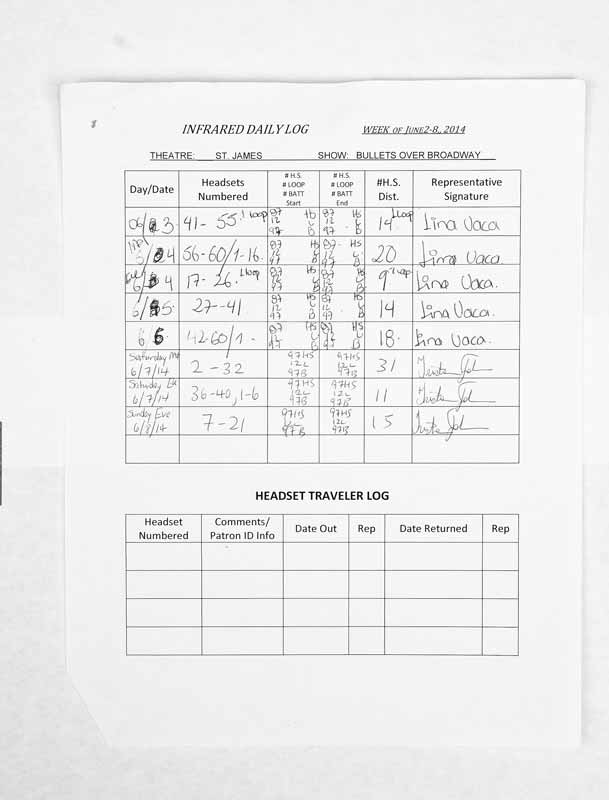 INFRARED DAILY LOG WEEK OF JUNE2-8, 2014
THEATRE: ST. JAMES SHOW: BULLETS OVER BROADWAY
Day/Date Headsets Numbered # H.S. # LOOP # BATT Start # H.S. # LOOP # BATT End #H.S. Dist. Representative Signature
06/3 41-55 1 Loop 87 Hb 12 L 97 B 87 Hb 12 L 97 B 14 1 Loop Lina Vaca
4 56-60/1-16. 87 HS 12 L 97 B 87 HS 12 L 97 B 20 Lina Vaca.
6/4 17-26. 1 Loop 87 HS 12 L 97 B 87 HS 12 L 97 B 9 1 Loop Lina Vaca.
6/5 27-41 87 HS 12 L 97 B 87 HS 12 L 97 B 14 Lina Vaca.
6/6 42-60/1- 87 HS 12 L 97 B 87 HS 12 L 97 B 18. Lina Vaca.
Saturday 6/7/14 2-32 97HS 12L 97B 97HS 12L 97B 31
Saturday 6/7/14 36-40, 1-6 97HS 12L 97B 97HS 12L 97B 11
Sunday Eve 6/8/14 7-21 97HS 12L 97B 97HS 12L 97B 15
HEADSET TRAVELER LOG
Headset Numbered Comments/ Patron ID Info Date Out Rep Date Returned Rep